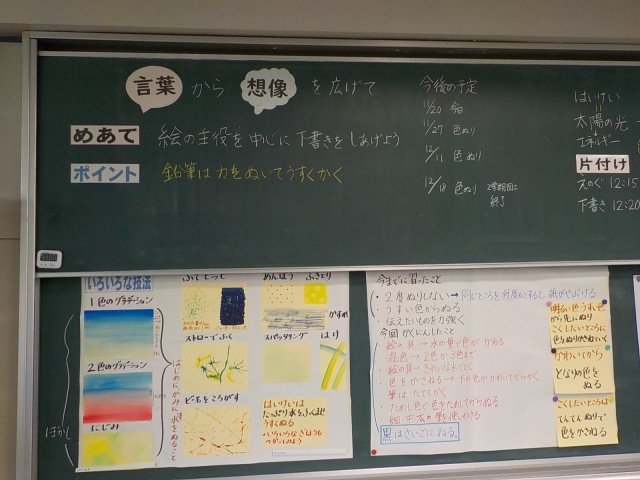 言葉 から 想像 を広げて
めあて 絵の主役を中心に下書きをしあげよう
ポイント 鉛筆は力をぬいてうすくかく
今後の予定
11/20 今日
11/27 色ぬり
12/11 色ぬり
12/18 色ぬり 2学期図工終了
はいけい
太陽の光
エネルギー
片付け
えのぐ 12:15
下書き 12:20
いろいろな技法
1色のグラデーション
2色のグラデーション
にじみ
ぼかし
はじめにかみに水をぬること
ストローでふく
ビー玉をころがす
めんぼう
かすれ
スパッタリング
はり
はいけいは
たっぷり水をふくませ
うすくぬる
・いろいろなぎほうも
つかってみよう
今までに習ったこと
・2度ぬりしない→同じところを何度もすると、紙がやぶける
・うすい色からぬる
・伝えたいものを力強く
今回かくにんしたこと
・絵の具→水の量で色がかわる
・混色→2色か3色まで
・色をかさねる→下の色がかわいてからかく
・筆はたててかく
・ためし色で色をためしてからぬる
黒はさいごにぬる。
明るい色・うすい色
から先にぬり
こくしたいところに
色をぬりかさねていく
かわいてから
となりの色を
ぬる
こくしたいところは
てんてんぬりで
色をかさねる